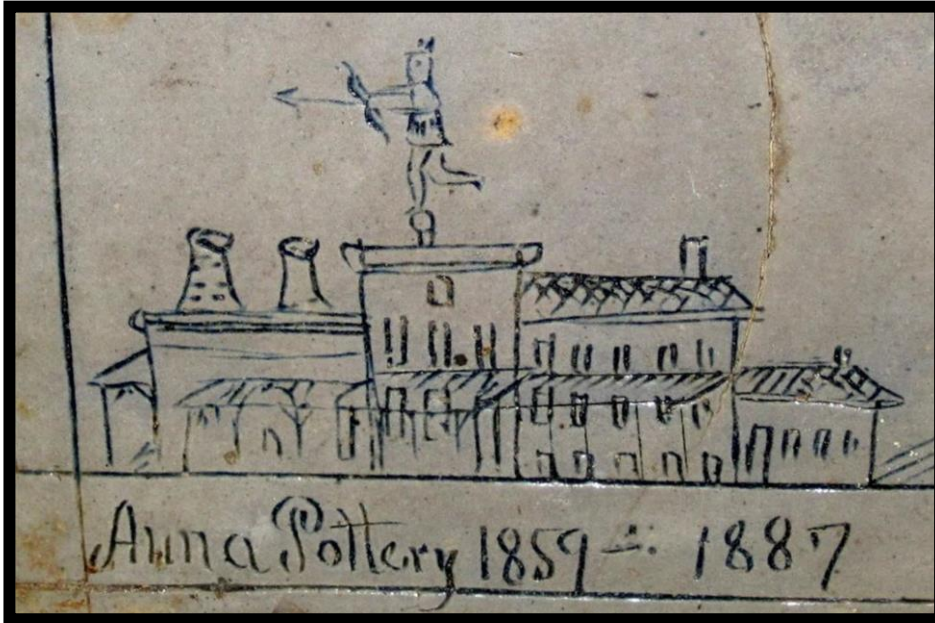 Anna Pottery 1859 - 1887